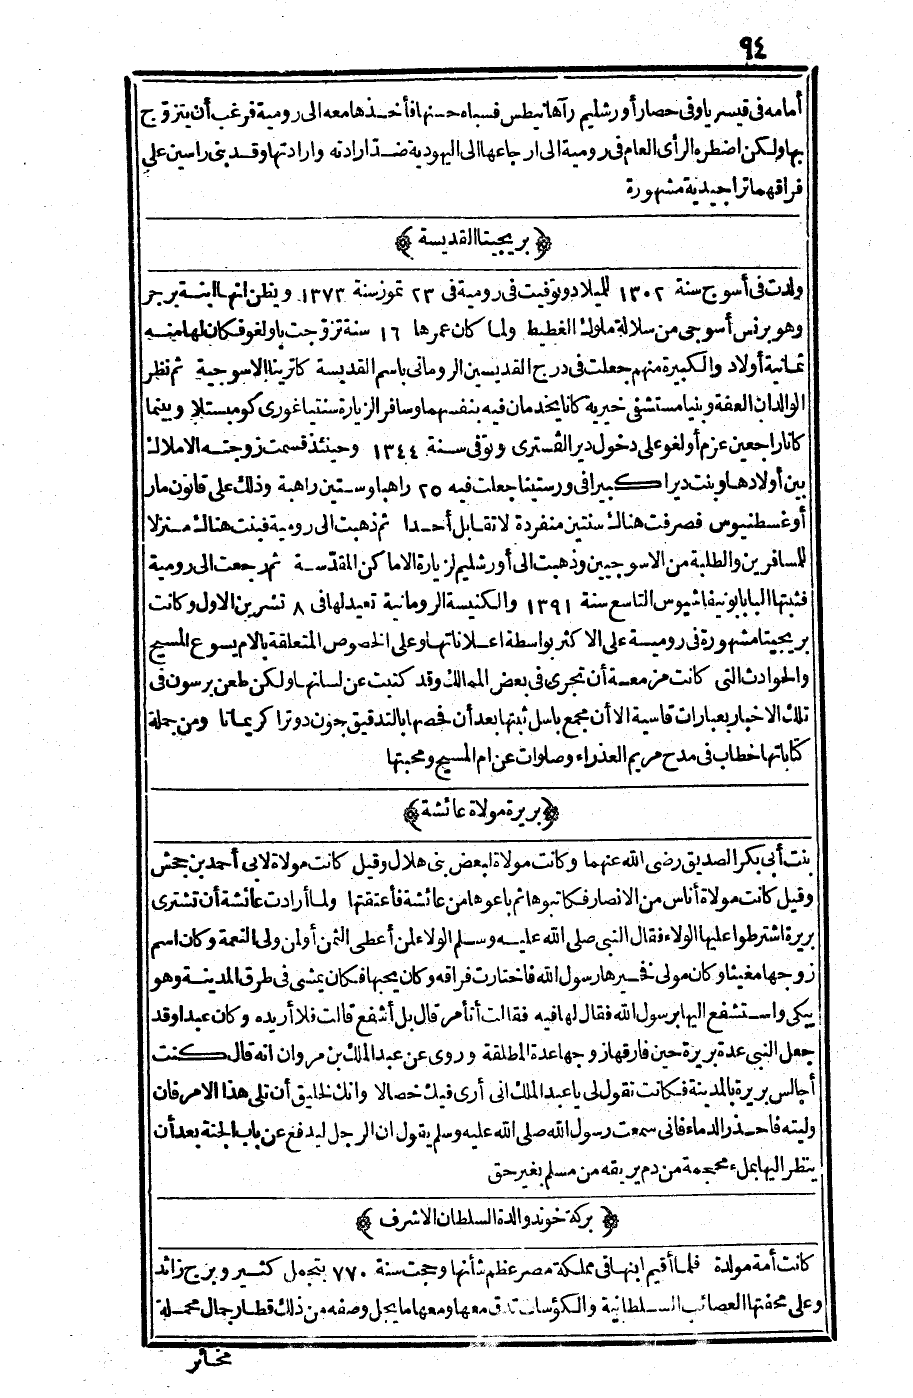 ٩٤
أمامه في قيسريا وفي حصار أورشليم رآها تيطس فسباه حسنها فأخذها معه الى رومية فرغب أن يتزوج
بها ولكن اضطره الرأى العام في رومية الى ارجاعها الى اليهودية ضد ارادته وارادتها وقد بنى راسين على
فراقهما تراجيدية مشهورة
﴿ بريجيتا القديسة ﴾
ولدت في أسوج سنة ١٣٠٢ للميلاد وتوفيت في رومية في ٢٣ تموز سنة ١٣٧٣ ويظن انها ابنة برجر
وهو برنس أسوجى من سلالة ملوك الغطيط ولما كان عمرها ١٦ سنة تزوجت باولغو فكان لها منه
ثمانية أولاد والكبيرة منهم جعلت في درج القديسين الرومانى باسم القديسة كاترينا الاسوجية ثم نظر
الوالدان العفة وبنيا مستشفى خيريه كانا يخدمان فيه بنفسهما وسافر الزيارة سنتياغورى كومبستلا وبينما
كانا راجعين عزم أولغو على دخول دير القسترى وتوفى سنة ١٣٤٤ وحينئذ قسمت زوجته الاملاك
بين أولادها وبنت ديرا كبيرا في ورستينا جعلت فيه ٢٥ راهبا وستين راهبة وذلك على قانون مار
أوغسطنيوس فصرفت هناك سنتين منفردة لا تقابل أحدا ثم ذهبت الى رومية فبنت هناك منزلا
للمسافرين والطلبة من الاسوجيين وذهبت الى أورشليم لزيارة الاماكن المقدسة ثم رجعت الى رومية
فثبتها البابا بونيفاشيوس التاسع سنة ١٣٩١ والكنيسة الرومانية تعيد لها في ٨ تشرين الاول وكانت
بريجيتا مشهورة في رومية على الاكثر بواسطة اعلاناتها وعلى الخصوص المتعلقة بآلام يسوع المسيح
والحوادث التى كانت مزمعة أن تجرى في بعض الممالك وقد كتبت عن لسانها ولكن طعن برسون في
تلك الاخبار بعبارات قاسية الا أن مجمع باسل ثبتها بعد أن فحصها بالتدقيق جون دوترا كريماتا ومن جملة
كتاباتها خطاب في مدح مريم العذراء وصلوات عن ام المسيح ومحبتها
﴿ بريرة مولاة عائشة ﴾
بنت أبى بكر الصديق رضى الله عنهما وكانت مولاة لبعض بنى هلال وقيل كانت مولاة لابى أحمد بن جحش
وقيل كانت مولاة أناس من الانصار فكاتبوها ثم باعوها من عائشة فأعتقتها ولما أرادت عائشة أن تشترى
بريرة اشترطوا عليها الولاء فقال النبى صلى الله عليه وسلم الولاء لمن أعطى الثمن أو لمن ولى النعمة وكان اسم
زوجها مغيثا وكان مولى فخيرها رسول الله فاختارت فراقه وكان يحبها فكان يمشى في طرق المدينة وهو
يبكى واستشفع اليها برسول الله فقال لها فيه فقالت أتأمر قال بل أشفع قالت فلا أريده وكان عبدا وقد
جعل النبى عدة بريرة حين فارقها زوجها عدة المطلقة وروى عن عبد الملك بن مروان انه قال كنت
أجالس بريرة بالمدينة فكانت تقول لى يا عبد الملك انى أرى فيك خصالا وانك لخليق أن تلى هذا الامر فان
وليته فاحذر الدماء فانى سمعت رسول الله صلى الله عليه وسلم يقول ان الرجل ليدفع عن باب الجنة بعد أن
ينظر اليها بملء محجمة من دم يريقه من مسلم بغير حق
﴿ بركة خوند والدة السلطان الاشرف ﴾
كانت أمة مولدة فلما أقيم ابنها في مملكة مصر عظم شأنها وحجت سنة ٧٧٠ بتجمل كثير وبرج زائد
وعلى محفتها العصائب السلطانية والكؤسات تدق معها ومعها ما يجل وصفه من ذلك قطار جمال محملة
مخاير